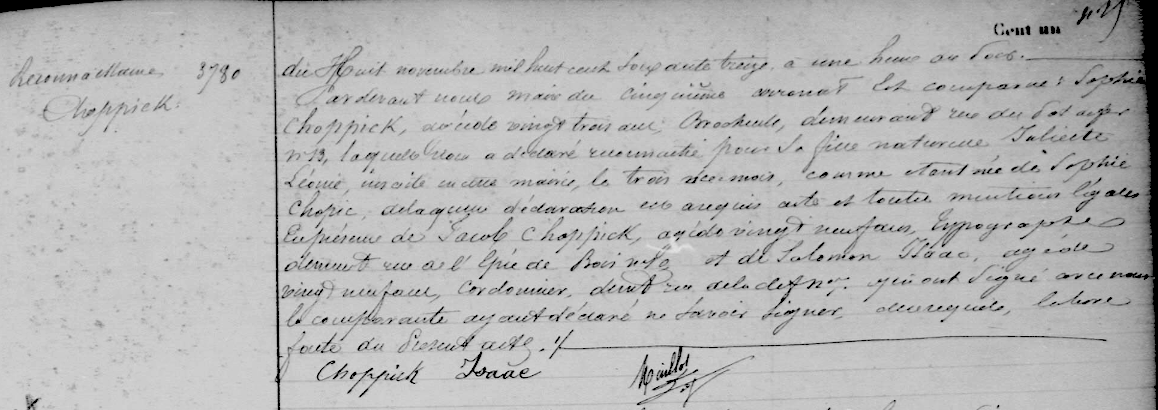 Cent un
Reconnaissance 3780
Choppick.
du Huit novembre mil huit cent soixante treize, à une heure du soir.
Pardevant nous maire du cinquième arrondt Est comparue: Sophie
Choppick, agée de vingt trois ans, Brocheuse, demeurant rue du Pot de fer
no 13, laquelle nous a déclaré reconnaître pour sa fille naturelle Juliette
Léonie, inscrite en cette mairie, le trois de ce mois, comme étant née de Sophie
Chopic, de laquelle déclaration elle a requis acte et toutes mentions légales
En présence de Jacob Choppick, agé de vingt neuf ans, typographe
demeurt rue de l'Epée de Bois no et de Salomon Isaac, agé de
vingt neuf ans, Cordonnier, demt rue de la clef no 7. qui ont signé avec nous
la comparante ayant déclaré ne savoir signer, lecture
faite du présent acte ./.
Choppick Isaac